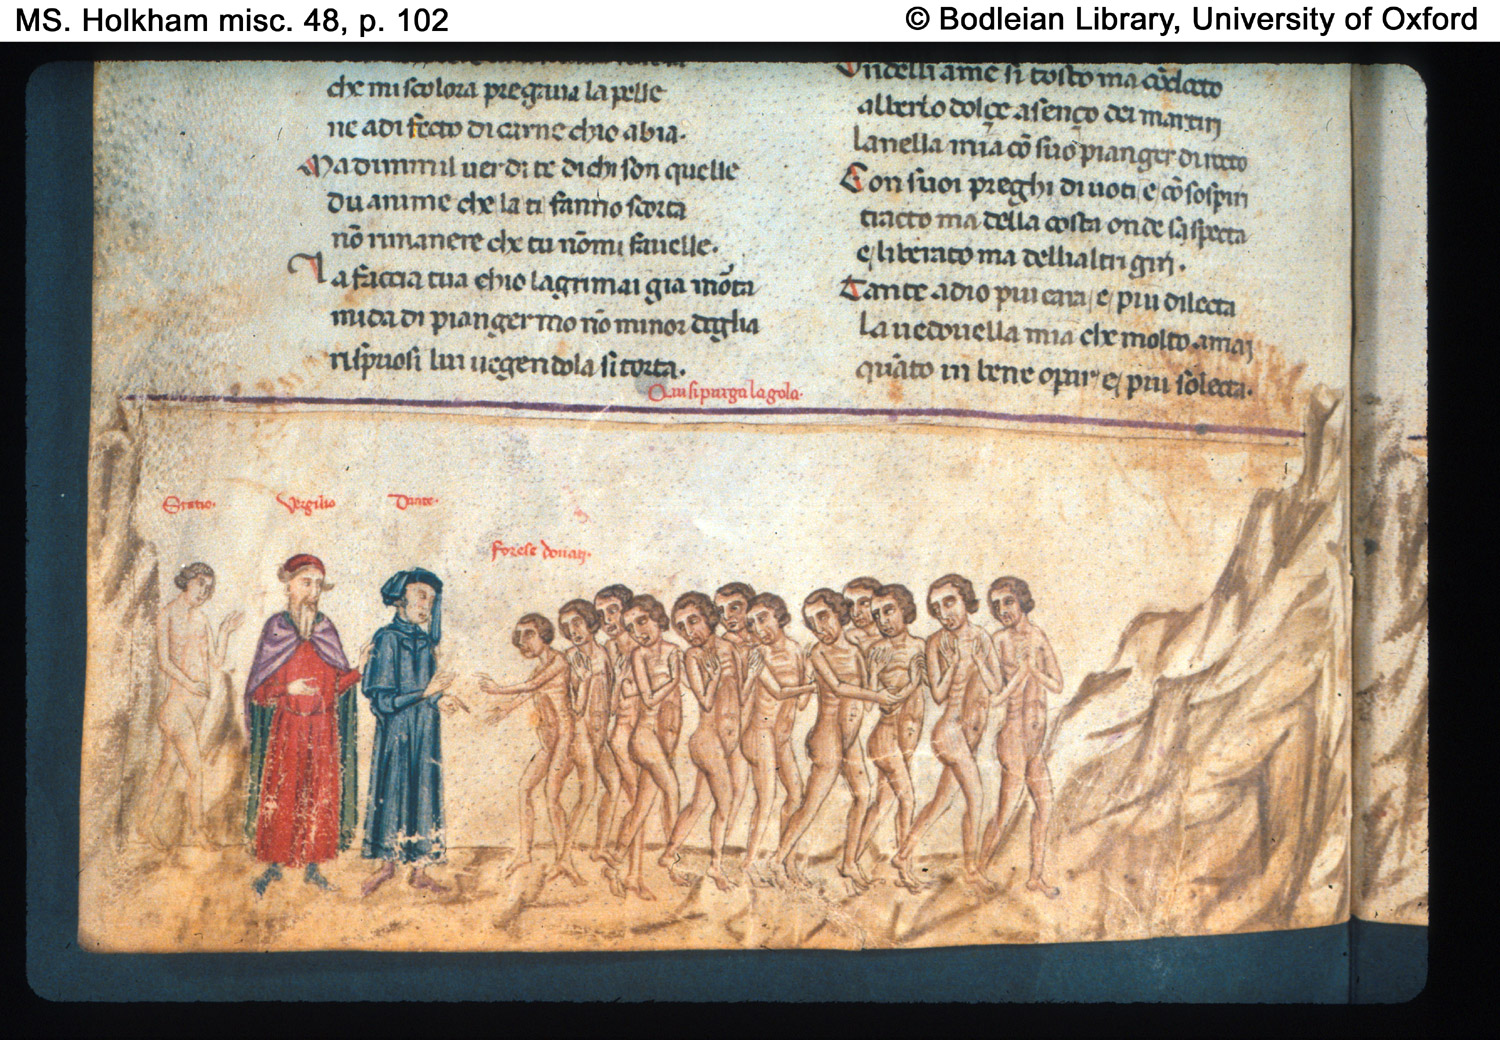 MS. Holkham misc. 48, p. 102
© Bodleian Library, University of Oxford
che mi scolora pregaua la pelle
ne a difecto di carne chio abia.
Ma dimmil uer di te di chi son quelle
du anime che la ti fanno scorta
nō rimanere che tu nōmi fauelle.
La faccia tua chio lagrimai gia mōrta
mi da di pianger mo nō minor doglia
rispuosi lui uegendola si torta.
si tosto ma cōdocto
a lo dolçe asenço dei martiri
la nella mia cō suo pianger diroto
Con suoi preghi diuoti e cō sospiri
tracto ma della costa onde saspecta
e liberato ma dellialtri giri.
Tante adio piu cara e piu dilecta
La uedouella mia che molto amai
quāto in bene opar e piu solecta.
Qui si purga la gola.
Statio.
Vergilio
Dante.
forese donati.